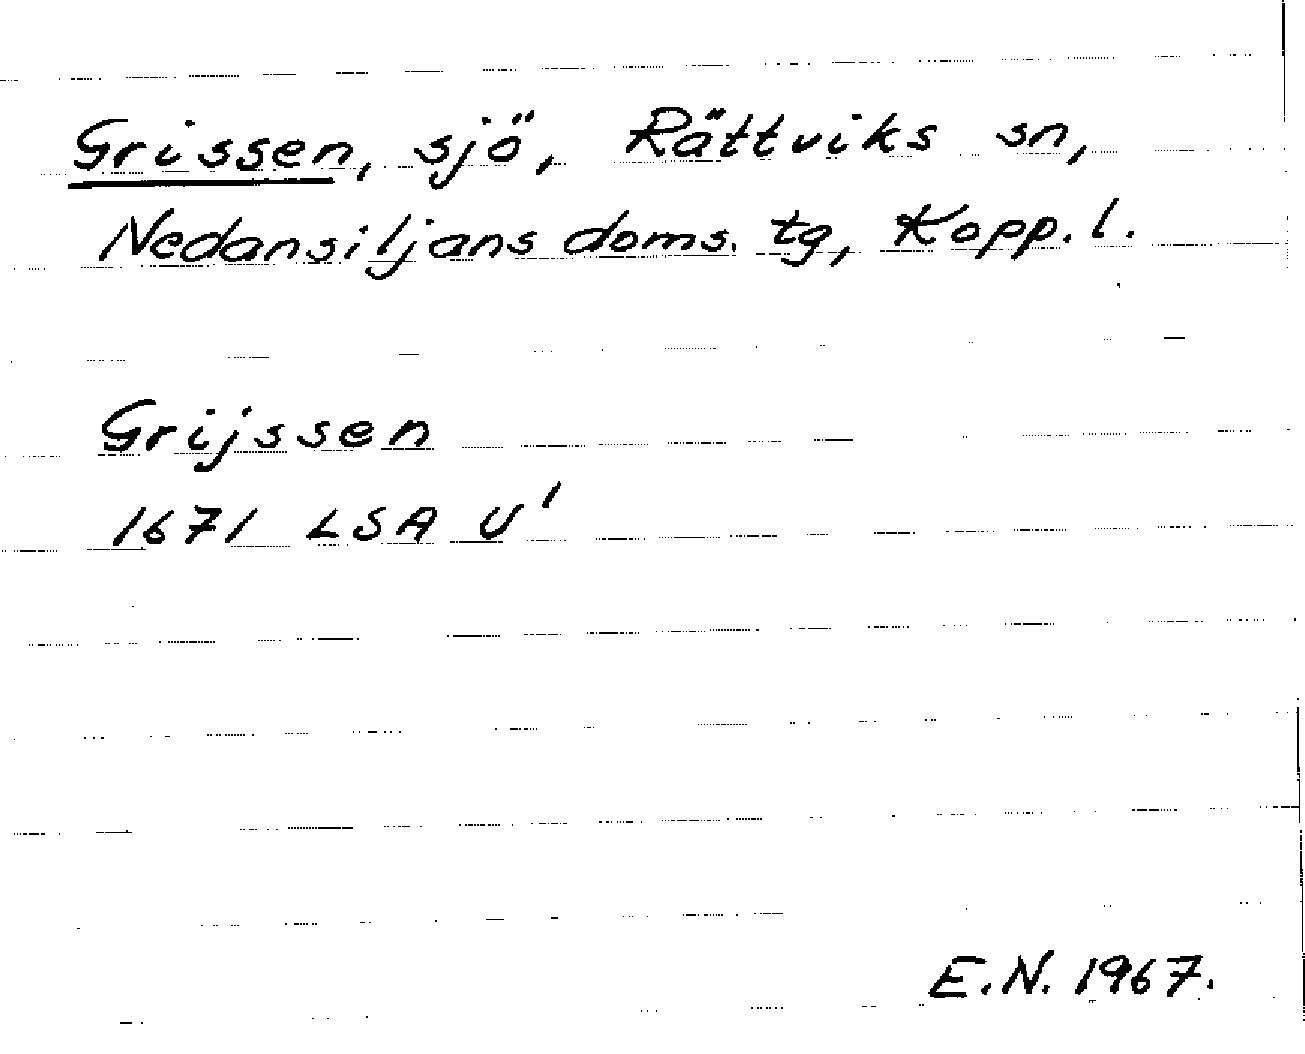 Grissen, sjö, Rättviks sn,
Nedansiljans doms. tg, Kopp. l.
Grijssen
1671 LSA U'
E.N. 1967.